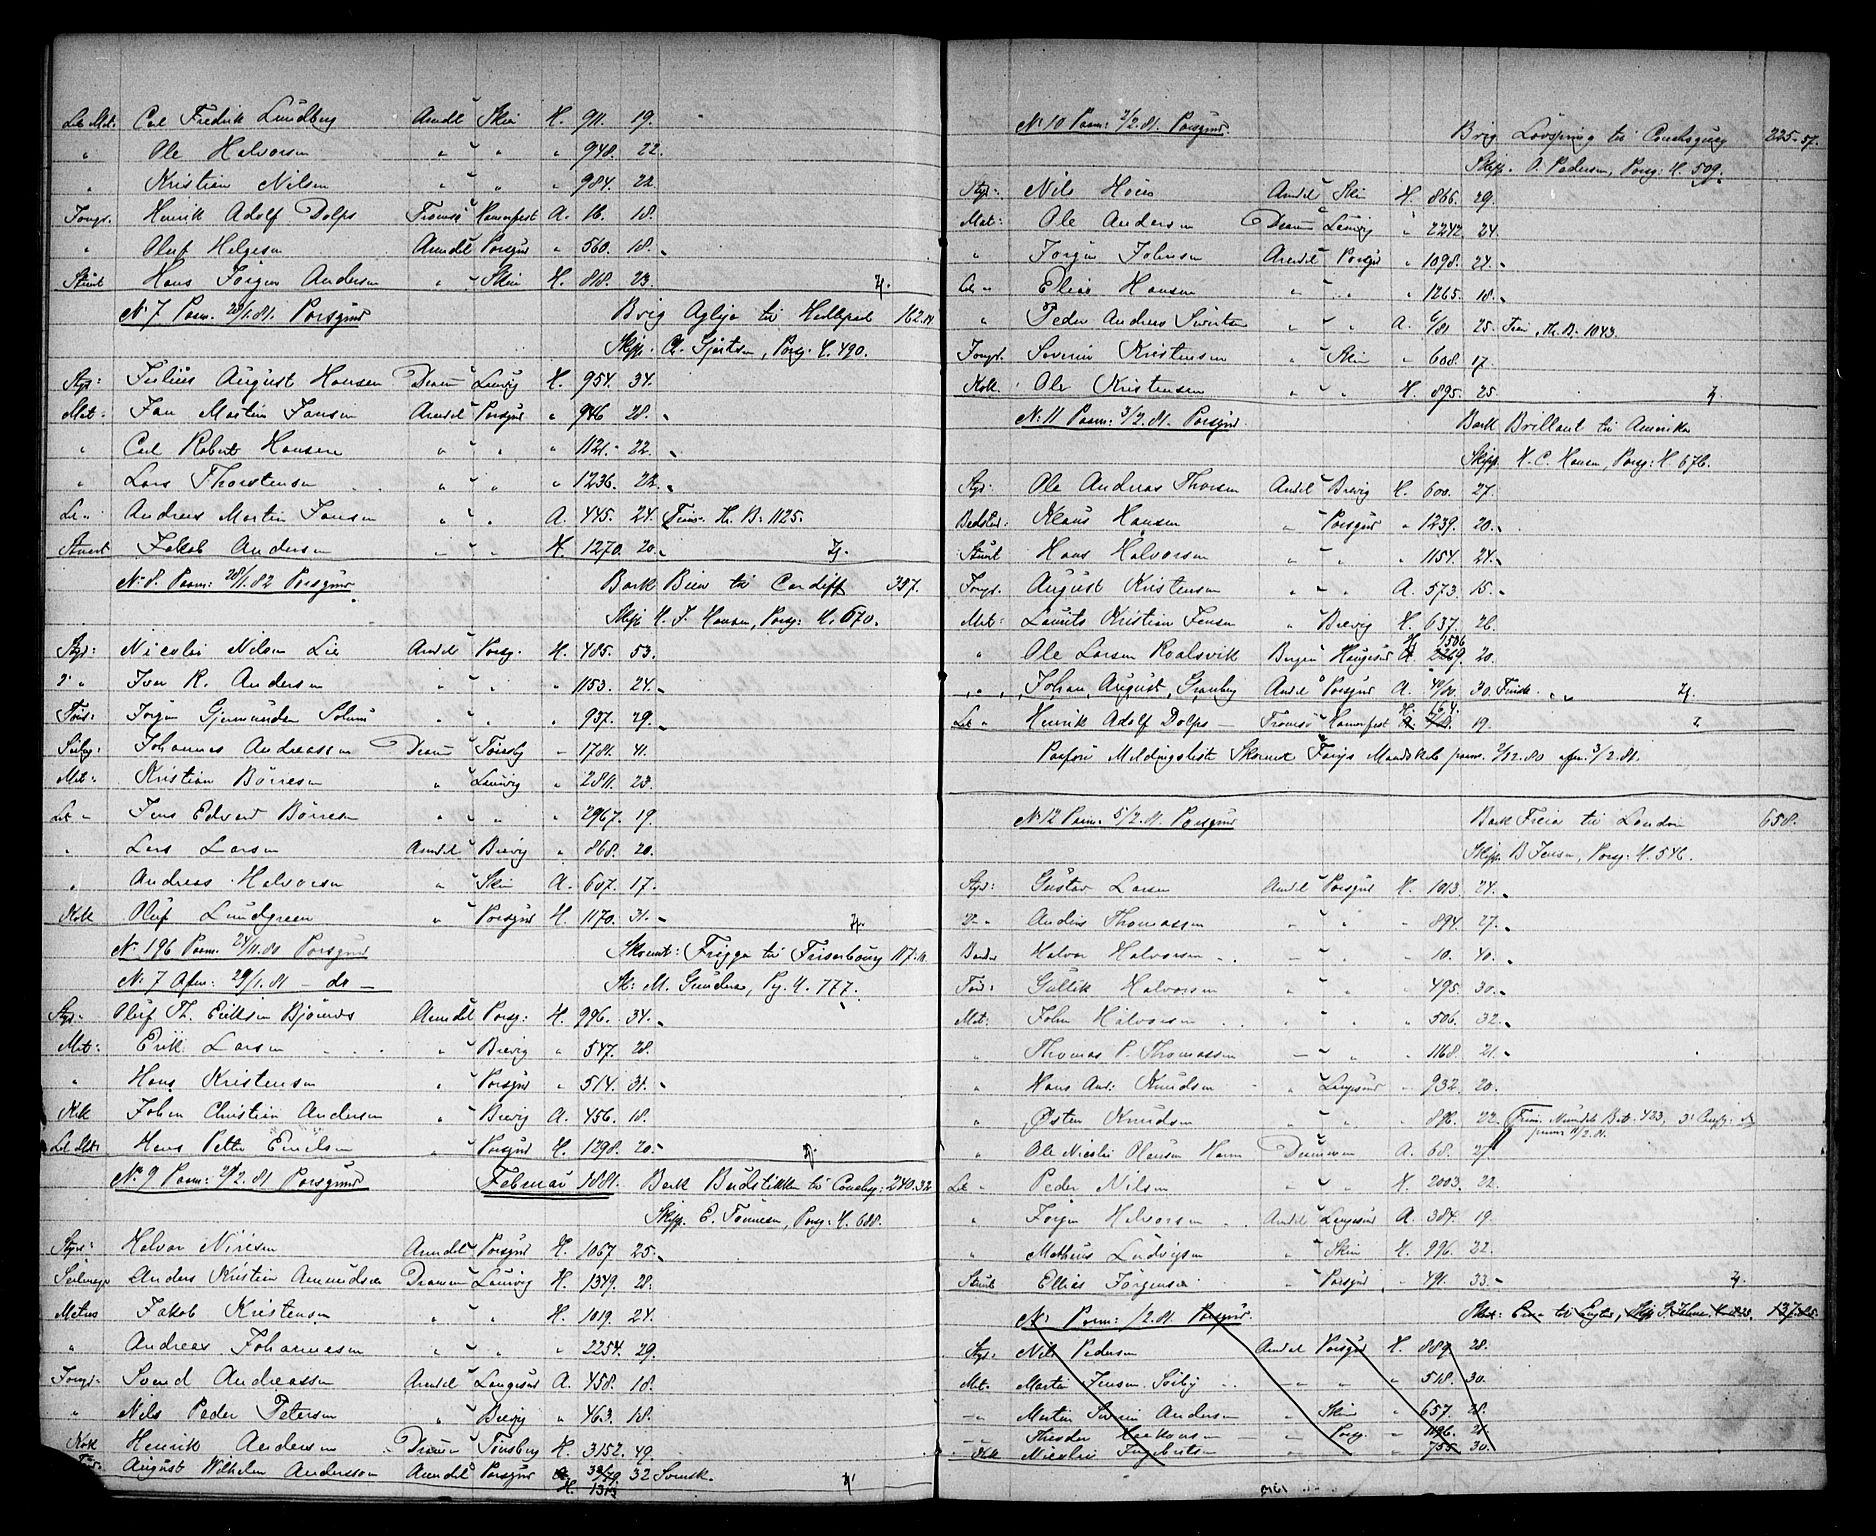 Let Mat: Carl Fredrik Lundberg Arendl Skien H. 911. 19.
" Ole Halvorsen " " " 948. 22.
" Kristian Nilsen " " " 984. 22.
Jongr. Henrik Adolf Dolps Tromsö Hamerfest A. 16. 18.
" Oluf Helgesen Arendl Porsgrd " 560. 18. "
Stuert Hans Jörgen Andersen " Skien H. 818. 23. 7.
No 7 Paam. 28/1.81. Porsgrund Brig Aglija til 162.
Skpp. Chr. Gjertsen, Porsg. H. 490.
Styr: Julius August Hansen Dram Laurvig H. 954. 34.
Mat: Jan Martin Jansen Arendl Porsgrd " 946 28. "
" Carl Robert Hansen " " " 1121. 22. "
" Lars Thorstensen " " " 1236. 22. "
Let " Andreas Martin Jansen " " A. 445. 24. H. B. 1125.
Stuert Jakob Andersen " " H. 1270. 20. " 7.
No 8. Paam: 28/1.82 Porsgrund Bark Bien til Cardiff 397.
Skpp H. J. Hansen, Porsg: H. 670.
Styr: Nicolai Nilsen Lie Arendl Porsg. H. 485. 53.
2' " Iver R. Andersen " " " 1153. 24. "
Töm: Jörgen Gjermundsen Solum " " " 937. 29. "
Seilmg: Johannes Andreassen Dram Tönsbg " 1781. 41.
Mat: Kristian Börresen " Laurvig " 2811. 23.
Let " Jens Edvard Börresen " " " 2967. 19.
" Lars Larsen Arendl Brevig " 868. 20.
" Andreas Halvorsen " Skien A. 607. 17.
Kok Oluf Lundgreen " Porsgrd H. 1170. 31. " 7.
No 196 Paam. 24/11.80 Porsgrund Skonnt: Frigga til 117.
No 7 Afm: 29/1.81 — do — Sk: M. Gundersen, Pg. H. 777.
Styr: Oluf Th. Eriksen Bjönnes Arendl Porsg: H. 996. 34. "
Mat: Erik Larsen " Brevig " 547. 28.
" Hans Kristensen " Porsgrd " 514. 31. "
Kok Johan Christian Andersen " Brevig A. 456. 18.
Let Mat: Hans Petter Emilsen " Porsgrd H. 1298. 20. " 7.
No 9 Paam: 2/2.81. Porsgrund Februar 1881. Bark Budstikken til 240.32
Skpp. E. Tönnesen, Porsg: H. 688.
Styr: Halvor Nirisen Arendl Porsgrd H. 1067. 25. "
Seilmager Anders Kristian Amundsen Dramm Laurvig H. 1349. 28.
Matros Jakob Kristensen " " H. 1019. 24.
" Andreas Johannesen " " " 2254. 29.
Jongr. Svend Andreassen Arendl Langesund A. 458. 18.
" Nils Peder Petersen " Brevig " 463. 18.
Kok Henrik Andersen Dramm Tönsberg H. 3152. 49.
August Wilhelm Andersson Arendl Porsgrd H. 1313 32 Svensk. 7.
No 10 Paam: 2/2.81. Porsgrd. Brig til 225.57.
Skpp. O. Pedersen, Porsg: H. 509.
Styr: Nils Arendl Skien H. 866. 29.
Mat: Ole Andersen Dramn Laurvig " 2242. 24.
" Jörgen Johnsen Arendl Porsgr " 1098. 24. "
Let " Elias Hansen " " " 1265. 18. "
" Peder Andreas Sivertsen " " A. 6/81 25. H. B. 1043.
Jongr. Severin Kristensen " Skien " 608. 17.
Kok Ole Kristensen " " H. 895. 25. 7.
No 11 Paam: 3/2.81. Porsgrd Bark Brillant til Amerika
Skpp. H. C. Hansen, Porsg: H. 676.
Styr: Ole Andreas Thorsen Arendl Brevig H. 600. 27.
Bedstm: Klaus Hansen " Porsgrd " 1239. 20. "
Stuert Hans Halvorsen " " " 1154. 24. "
Jongr. August Kristensen " " A. 573. 15. "
Mat: Laurits Kristian Jensen " Brevig H. 637. 26.
" Ole Larsen Roalsvik Bergen Haugesund H. 1506 20.
" " Johan August Granberg Arendl Porsgrd A. 30. Finsk. " 7.
Let " Henrik Adolf Dolps — Tromsö Hamerfest H. 164. 19.
Paaført Meldingsliste Skonnert Mandskab paam. 2/12.80 afm. 3/2.81.
No 12 Paam: 5/2.81. Porsgrund Bark Freia til London 658.
Skpp. B Jensen, Porsg. H. 546.
Styr: Gustav Larsen Arendl Porsgrd H. 1013. 24. "
2' " Anders Thomassen " " " 894. 27. "
Halvor Halvorsen " " " 10. 40. "
Töm: Gullik Halvorsen " " " 495. 30. "
Mat: John Halvorsen " " " 506. 32. "
" Thomas P. Thomassen " " " 1168. 21. "
" Hans And: Knudsen " Langesund " 932. 20.
" Østen Knudsen " " " 816. 22.
paam 11/2.81.
" Ole Nicolai Olausen Dramen A. 68. 27
Let " Peder Nilsen " " H. 2003. 22.
" Jörgen Halvorsen Arendl Langesund A. 384. 19.
" Mathias Ludvigsen " Skien H. 996. 22.
Stuert Ellias Jörgensen " Porsgrd " 491. 33. " 7.
No Paam: /2.81. Porsgrd. 137.
Styr: Nils Pedersen Arendl Porsgrd H. 889 28.
Mat. Martin Jensen " " " 518. 30.
" Martin Severin Andersen " Skien " 657. 28.
" Theodor Haakonsen " Porsg. " 1196. 21
Kok Nicolai Ingebretsen " " " 755. 30.